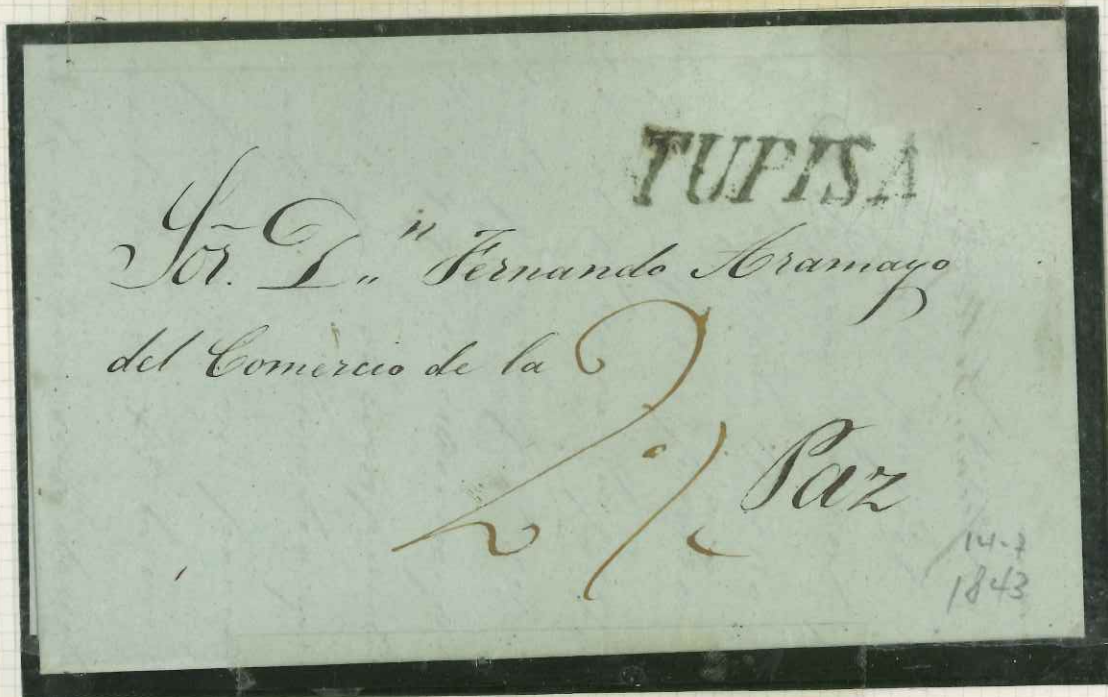 TUPISA
Sor. Dn Fernando Aramayo
del Comercio de la
2
Paz
14-7
1843